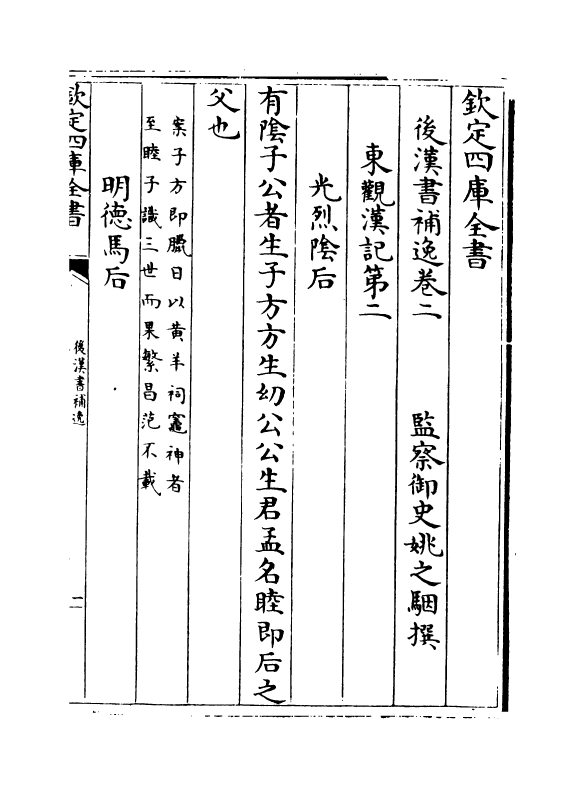 欽定四庫全書
後漢書補逸卷二
監察御史姚之駰撰
東觀漢記第二
光烈陰后
有陰子公者生子方方生幼公公生君孟名睦即后之
父也
案子方即臘日以黃羊祠竈神者
至睦子識三世而果繁昌范不載
明德馬后
欽定四庫全書
後漢書補逸
二